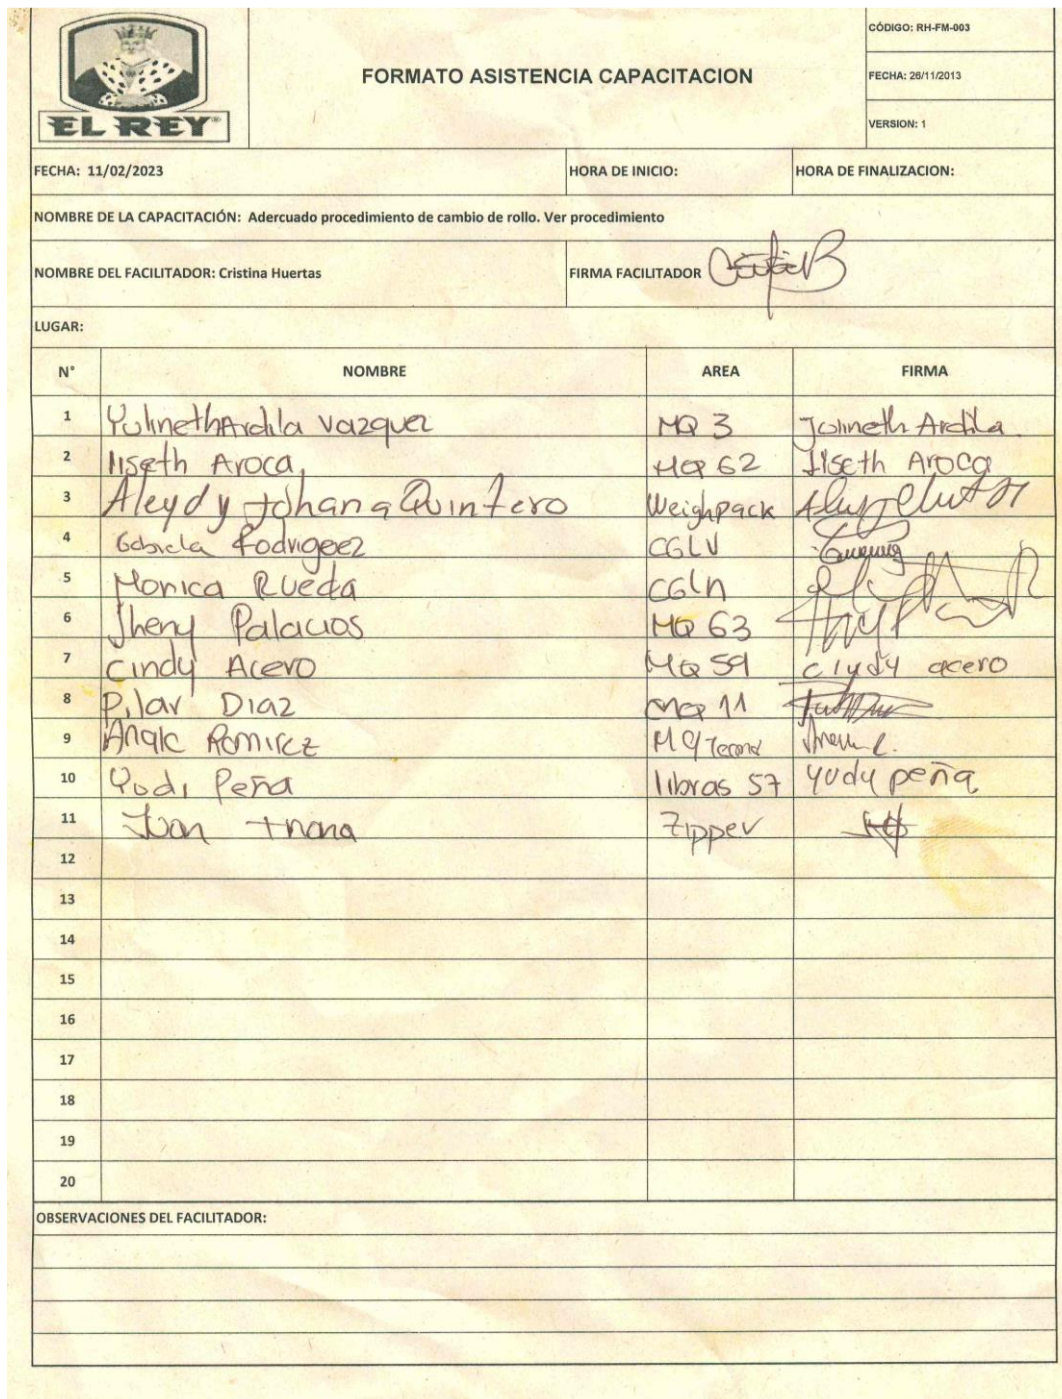 EL REY
FORMATO ASISTENCIA CAPACITACION
CÓDIGO: RH-FM-003
FECHA: 26/11/2013
VERSION: 1
FECHA: 11/02/2023 HORA DE INICIO: HORA DE FINALIZACION:
NOMBRE DE LA CAPACITACIÓN: Adercuado procedimiento de cambio de rollo. Ver procedimiento
NOMBRE DEL FACILITADOR: Cristina Huertas FIRMA FACILITADOR
LUGAR:
N° NOMBRE AREA FIRMA
1 Yulineth Ardila Vazquez MQ 3 Julineth Ardila
2 liseth Aroca MQ 62 Liseth Aroca
3 Aleydy Johana Quintero Weighpack
4 Gabriela Rodriguez CGLV
5 Monica Rueda CGLn
6 Jheny Palacios MQ 63
7 Cindy Acero MQ 59 Ciydy acero
8 Pilar Diaz MQ 11
9 Angie Ramirez MQ
10 Yudi Peña libras 57 Yudy peña
11 Ivan Zipper
12
13
14
15
16
17
18
19
20
OBSERVACIONES DEL FACILITADOR: